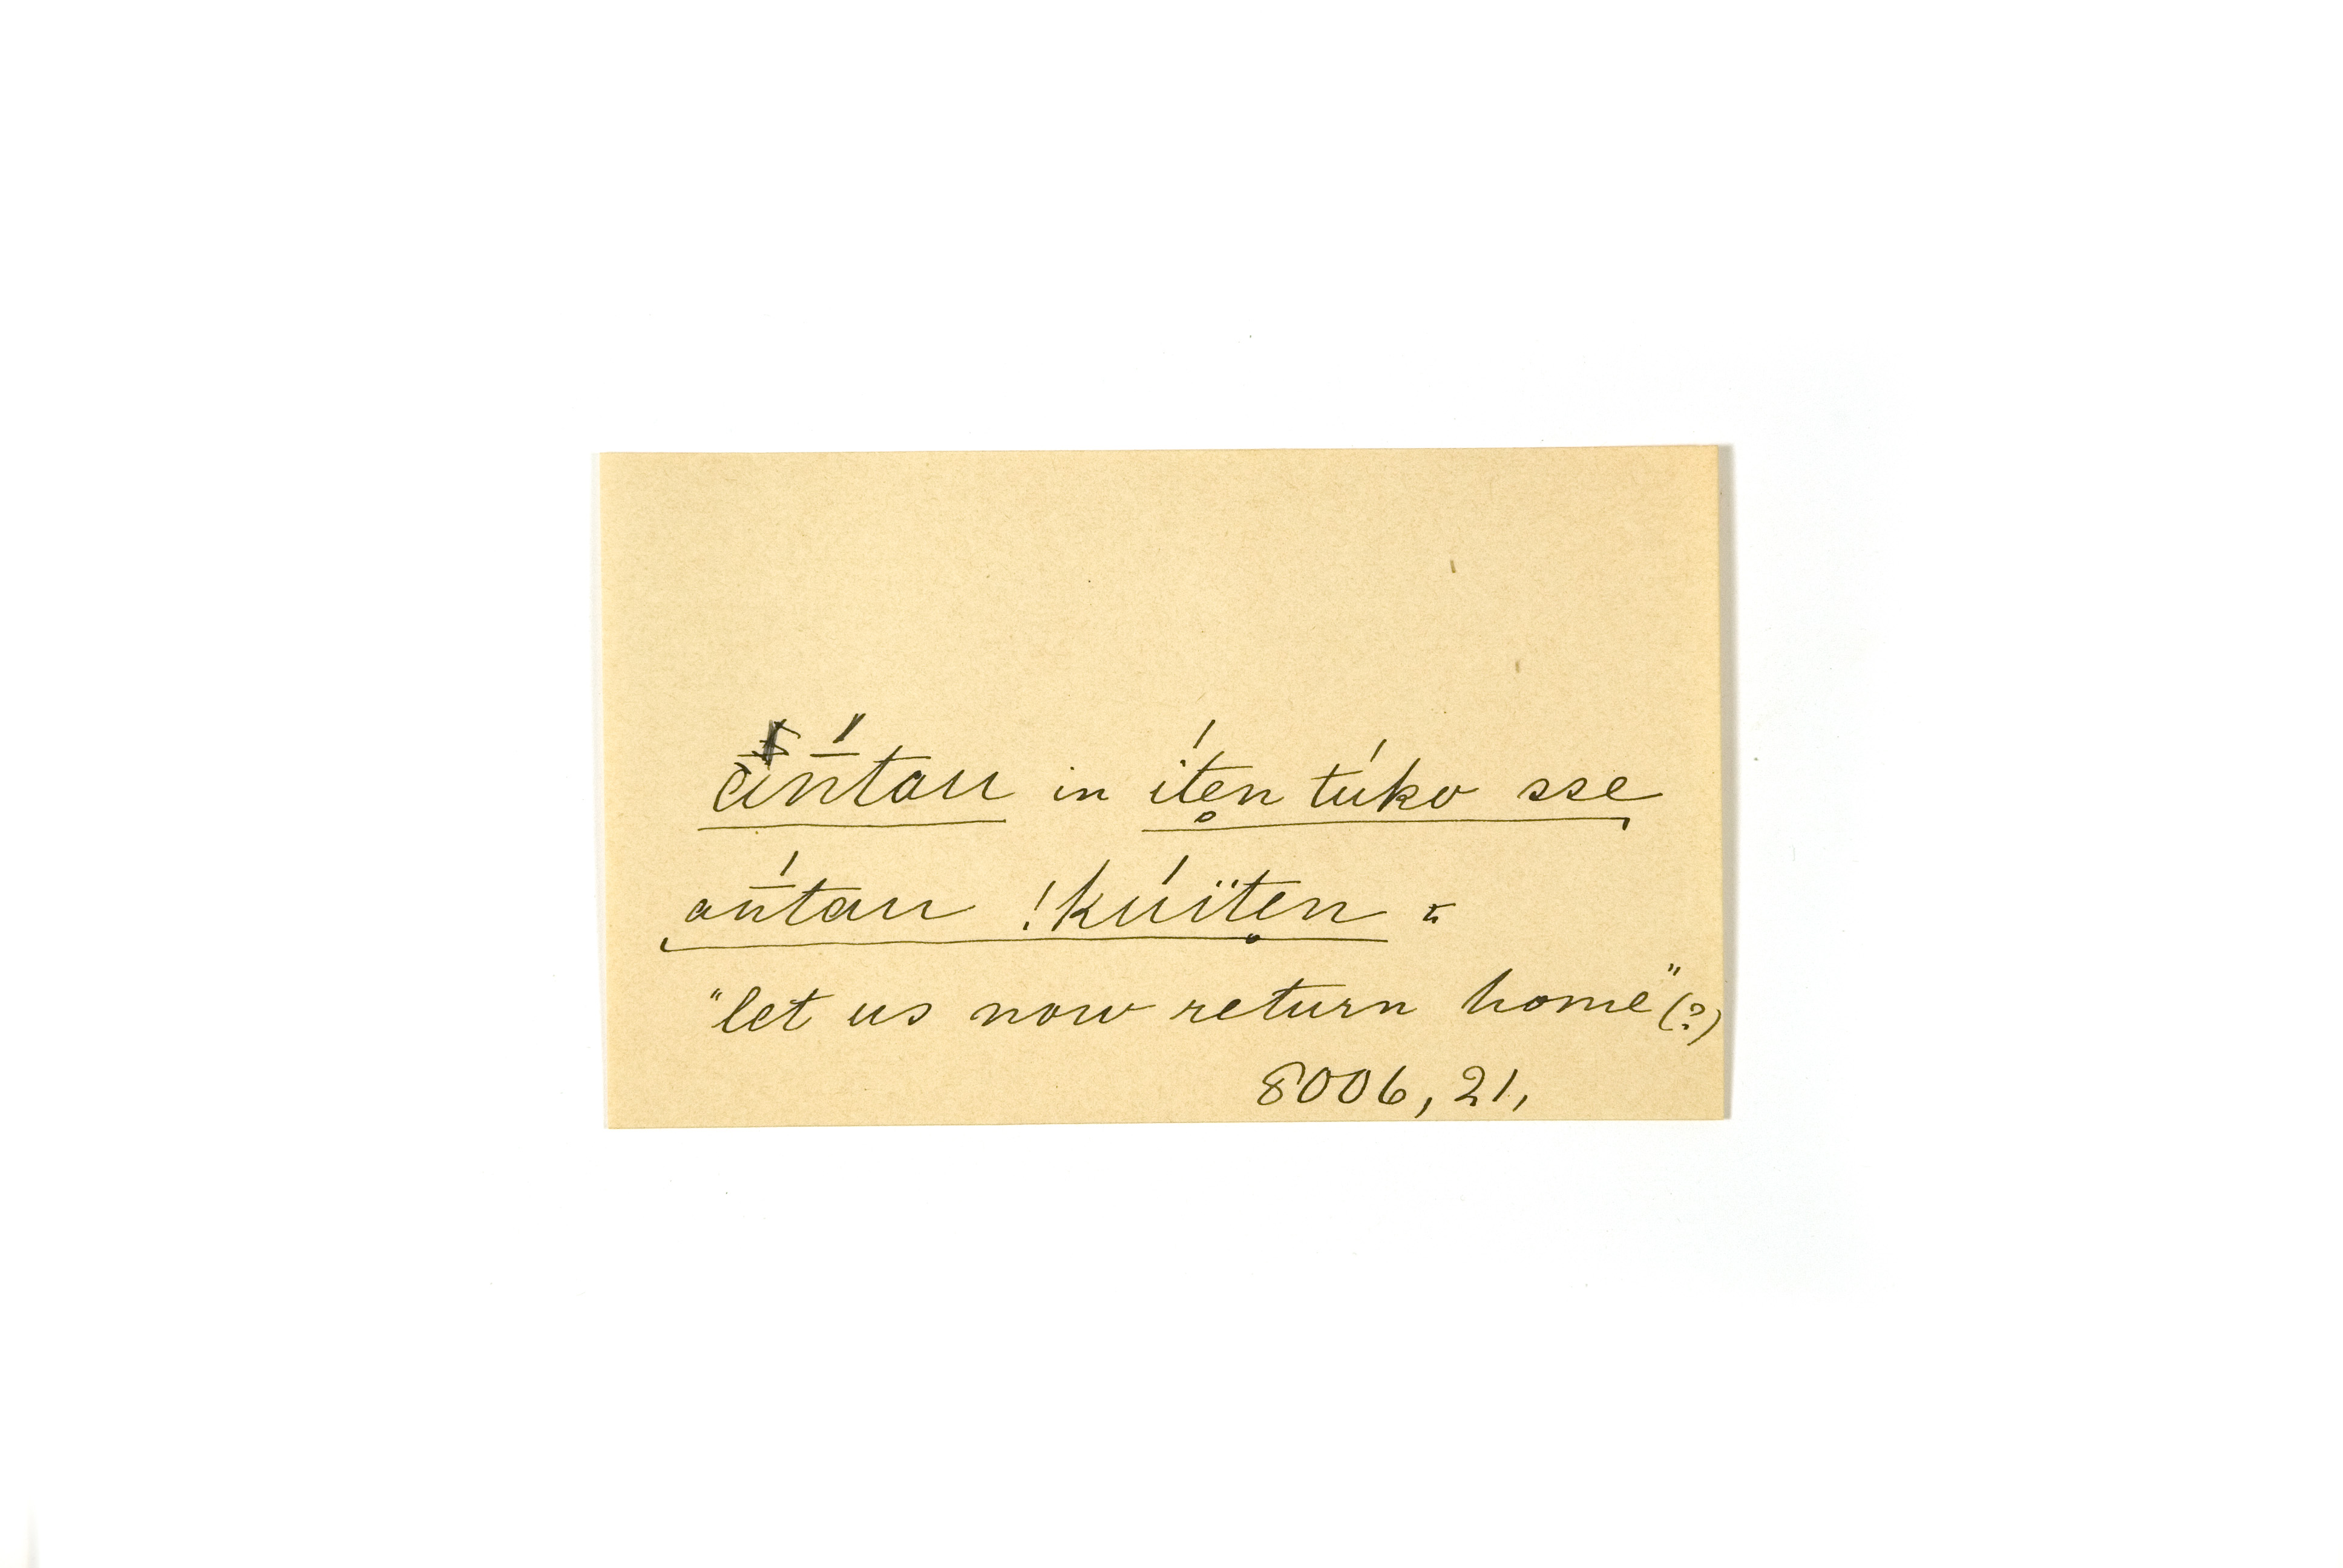 a̅n̅́tau in íte̥n túko sse
an̅́tau !kúïte̥n =
"let us now return home" (?)
8006, 21,